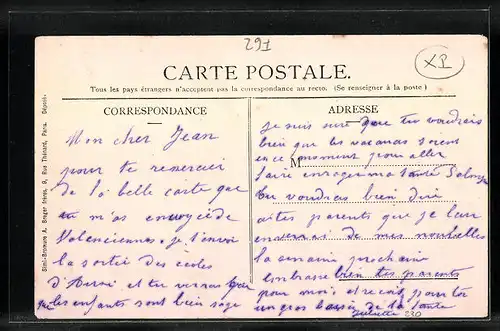 291
XP
CARTE POSTALE.
Tous les pays étrangers n'acceptent pas la correspondance au recto. (Se renseigner à la poste)
CORRESPONDANCE
Mon cher Jean
pour te remercier
de la belle carte que
tu m'as envoyée de
Valenciennes, je t'envoi
la sortie des écoles
d' et tu verras que
les enfants sont bien sage
ADRESSE
je suis sure que tu voudrais
bien que les vacances soient
en ce moment pour aller
M
faire enrager ma tante
tu voudras bien dire
a tes parents que je leur
enverrai de mes nouvelles
la semaine prochaine
embrasse bien tes parents
pour moi et reçois pour toi
un gros baiser de la tante
Juliette
Simi-Bromure A. Breger frères, 9, Rue Thénard, Paris. Déposé.